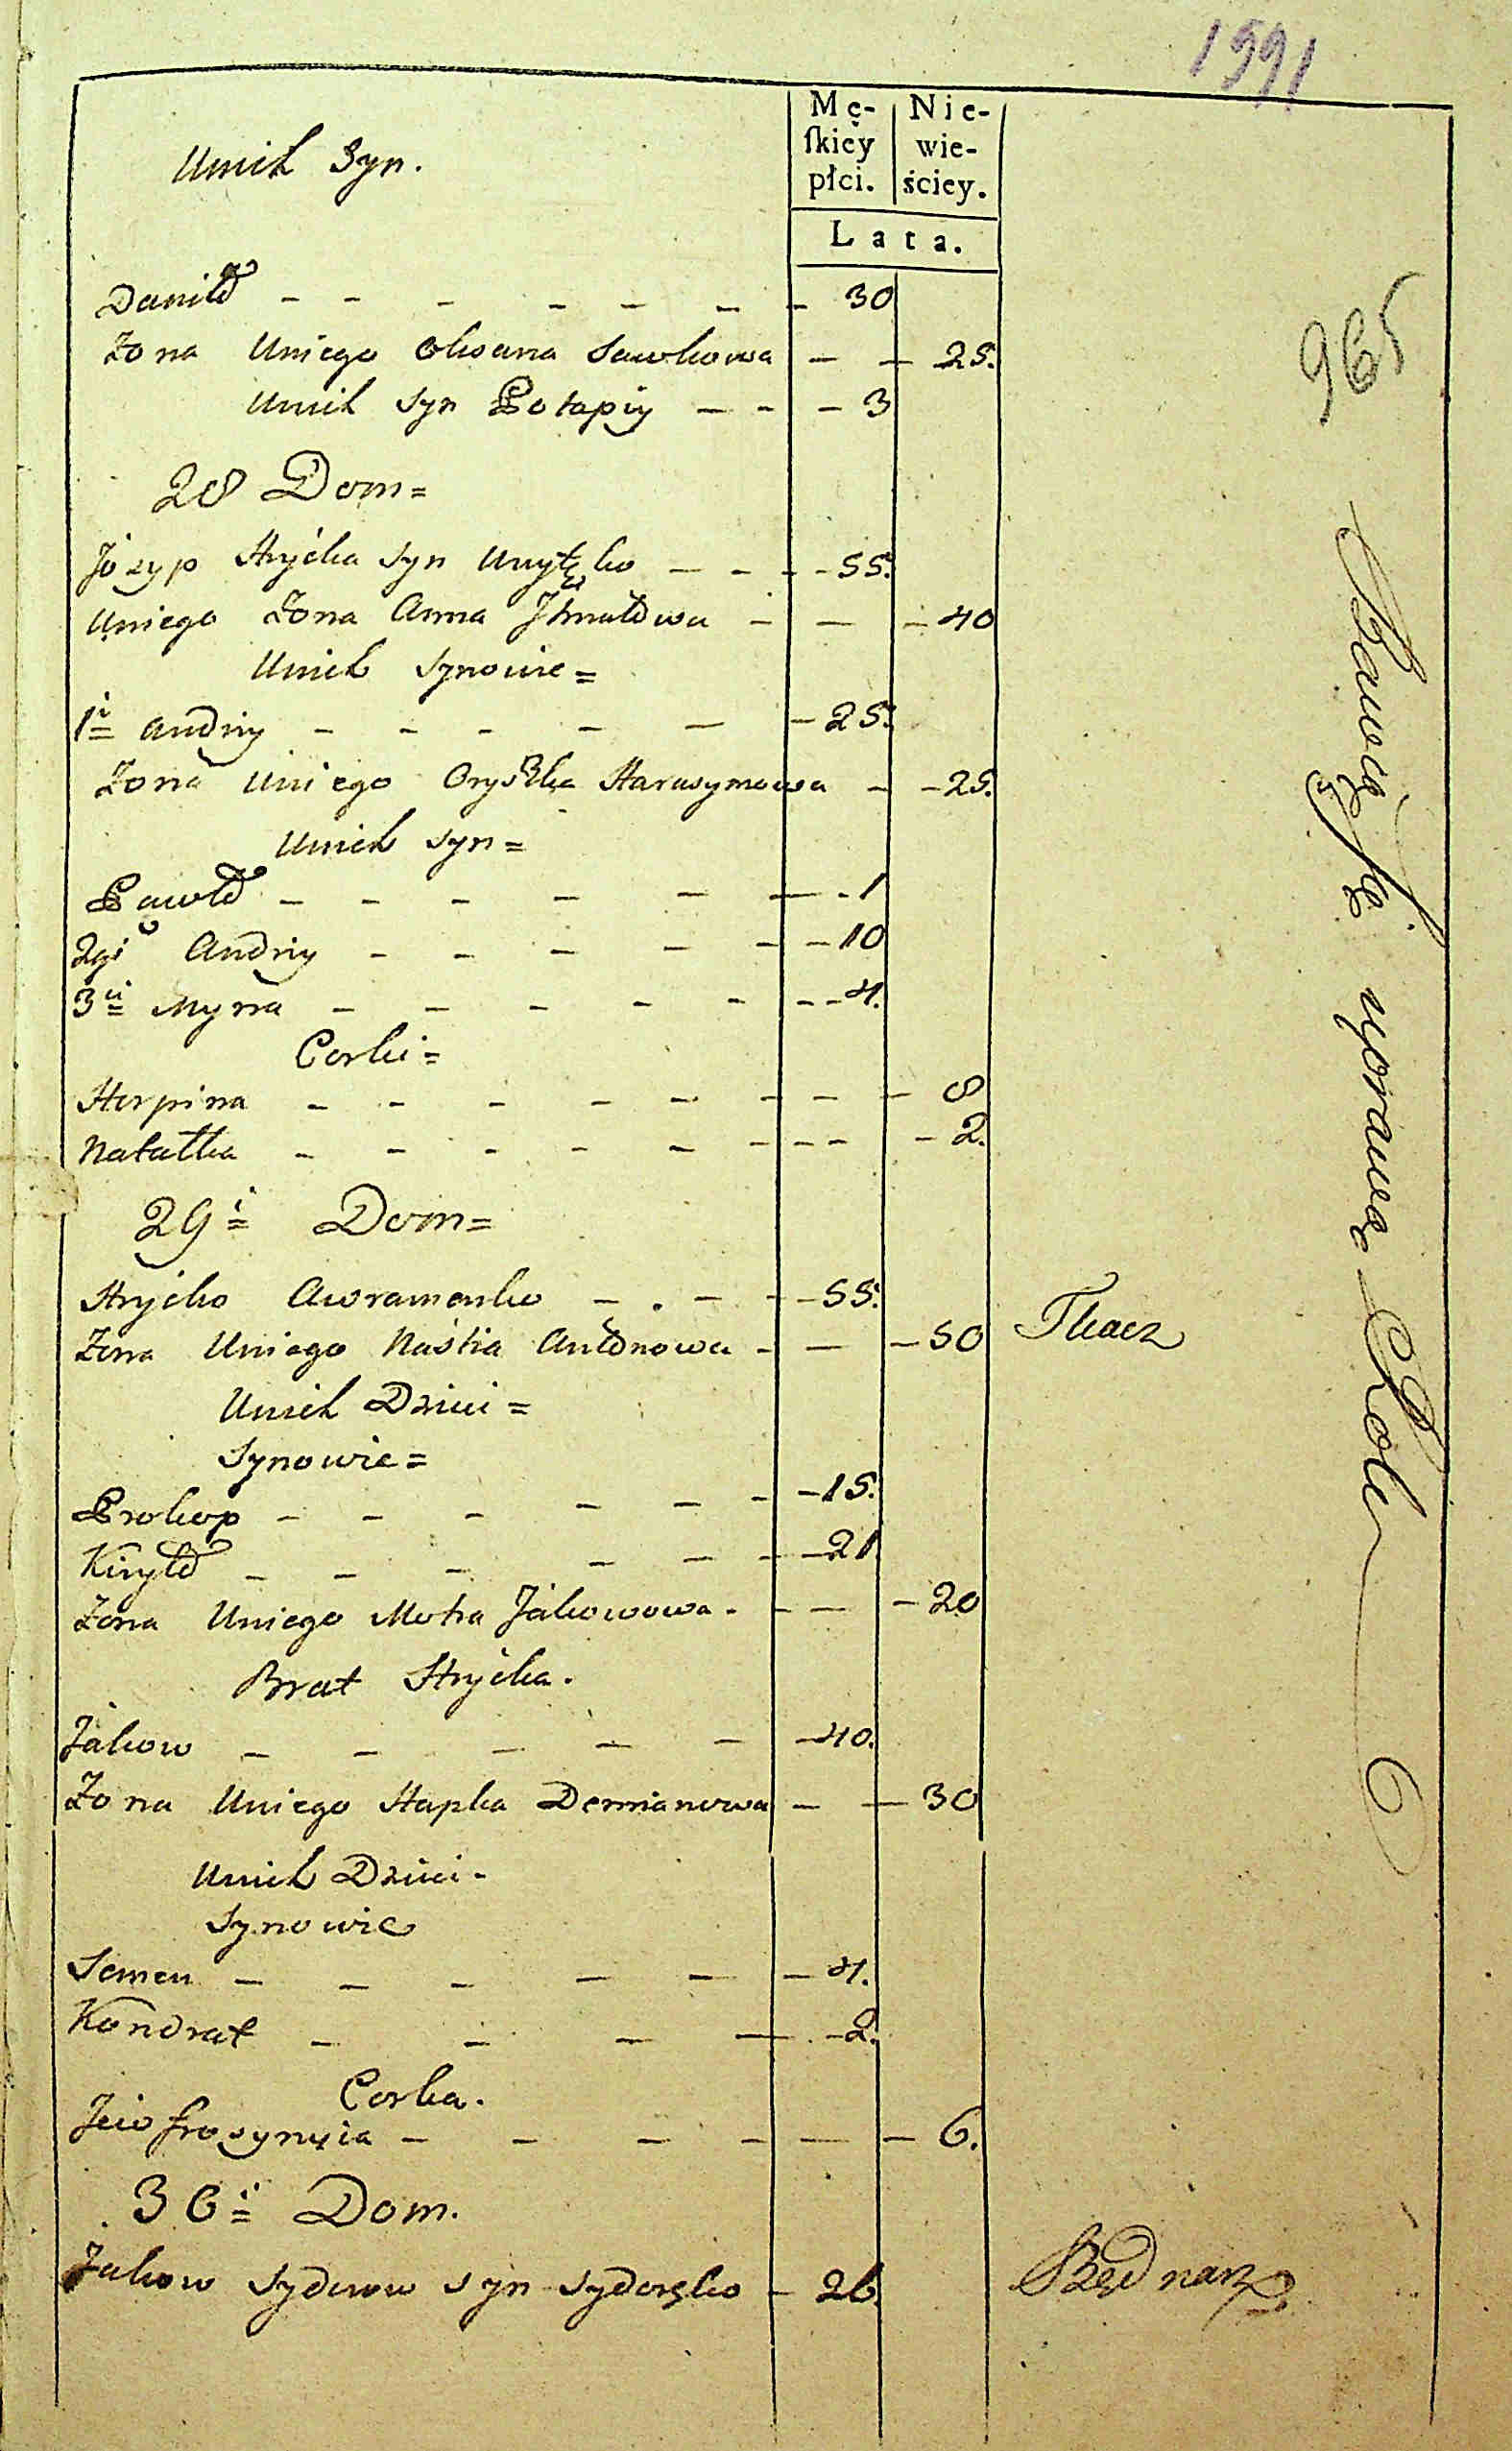 1591
965
Mę- Nie-
ſkiey wie-
płci. ściey.
Unich Syn.
Lata.
Daniło - - - - - - - 30
Żona Uniego Oksana Sawkowa - - 25.
Unich Syn Potapiy - - - 3
28 Dom =
Józyp Hryćka Syn - - - - 55.
Uniego Żona Anna - - - 40
Unich Synowie =
1i= Andriy - - - - - - 25.
Żona Uniego Oryszka Harasymowa - - 25.
Unich Syn =
Pawło - - - - - - - 1
2gi Andriy - - - - - - 10
3ii= Myna - - - - - - - 4.
Corki =
Horpina - - - - - - - - 8
Natałka - - - - - - - - - 2.
29i= Dom =
Hryćko Awramenko - . - - - 55.
Żona Uniego Naśtia Antonowa - - - 50 Tkacz
Unich Dzieci =
Synowie =
Prokop - - - - - - - 15.
Kiryło - - - - - - - 21
Żona Uniego Motra Jakowowa - - - - 20
Brat Hryćka.
Jakow - - - - - - 40.
Żona Uniego Hapka Demianowa - - 30
Unich Dzieci -
Synowie
Semen - - - - - - 4.
Kondrat - - - - - 2.
Corka.
- - - - - - 6.
30i= Dom.
Jakow Sydorow Syn Sydoręko - 26. Będnarz
Bawią się uprawą Roli